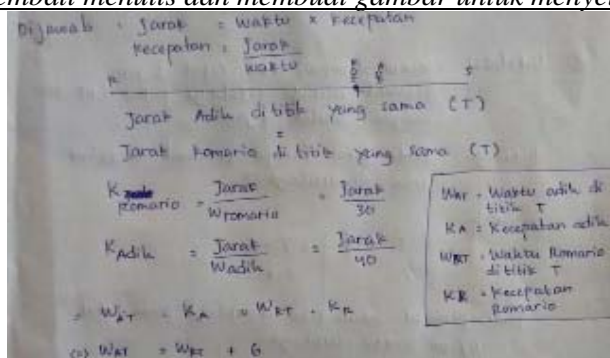 embali menulis dan membuat gambar untuk menye
Dijawab : Jarak = Waktu x Kecepatan
Kecepatan = Jarak
waktu
R S
Jarak Adik di titik yang sama (T)
=
Jarak Romario di titik yang sama (T)
K Romario = Jarak = Jarak
Wromario 30
KAdik = Jarak = Jarak
Wadik 40
= WAT . KA = WRT . KR
(=) WAT = WRT + 6
WAT = Waktu adik di
titik T
KA = Kecepatan adik
WRT = Waktu Romario
di titik T
KR = Kecepatan
Romario